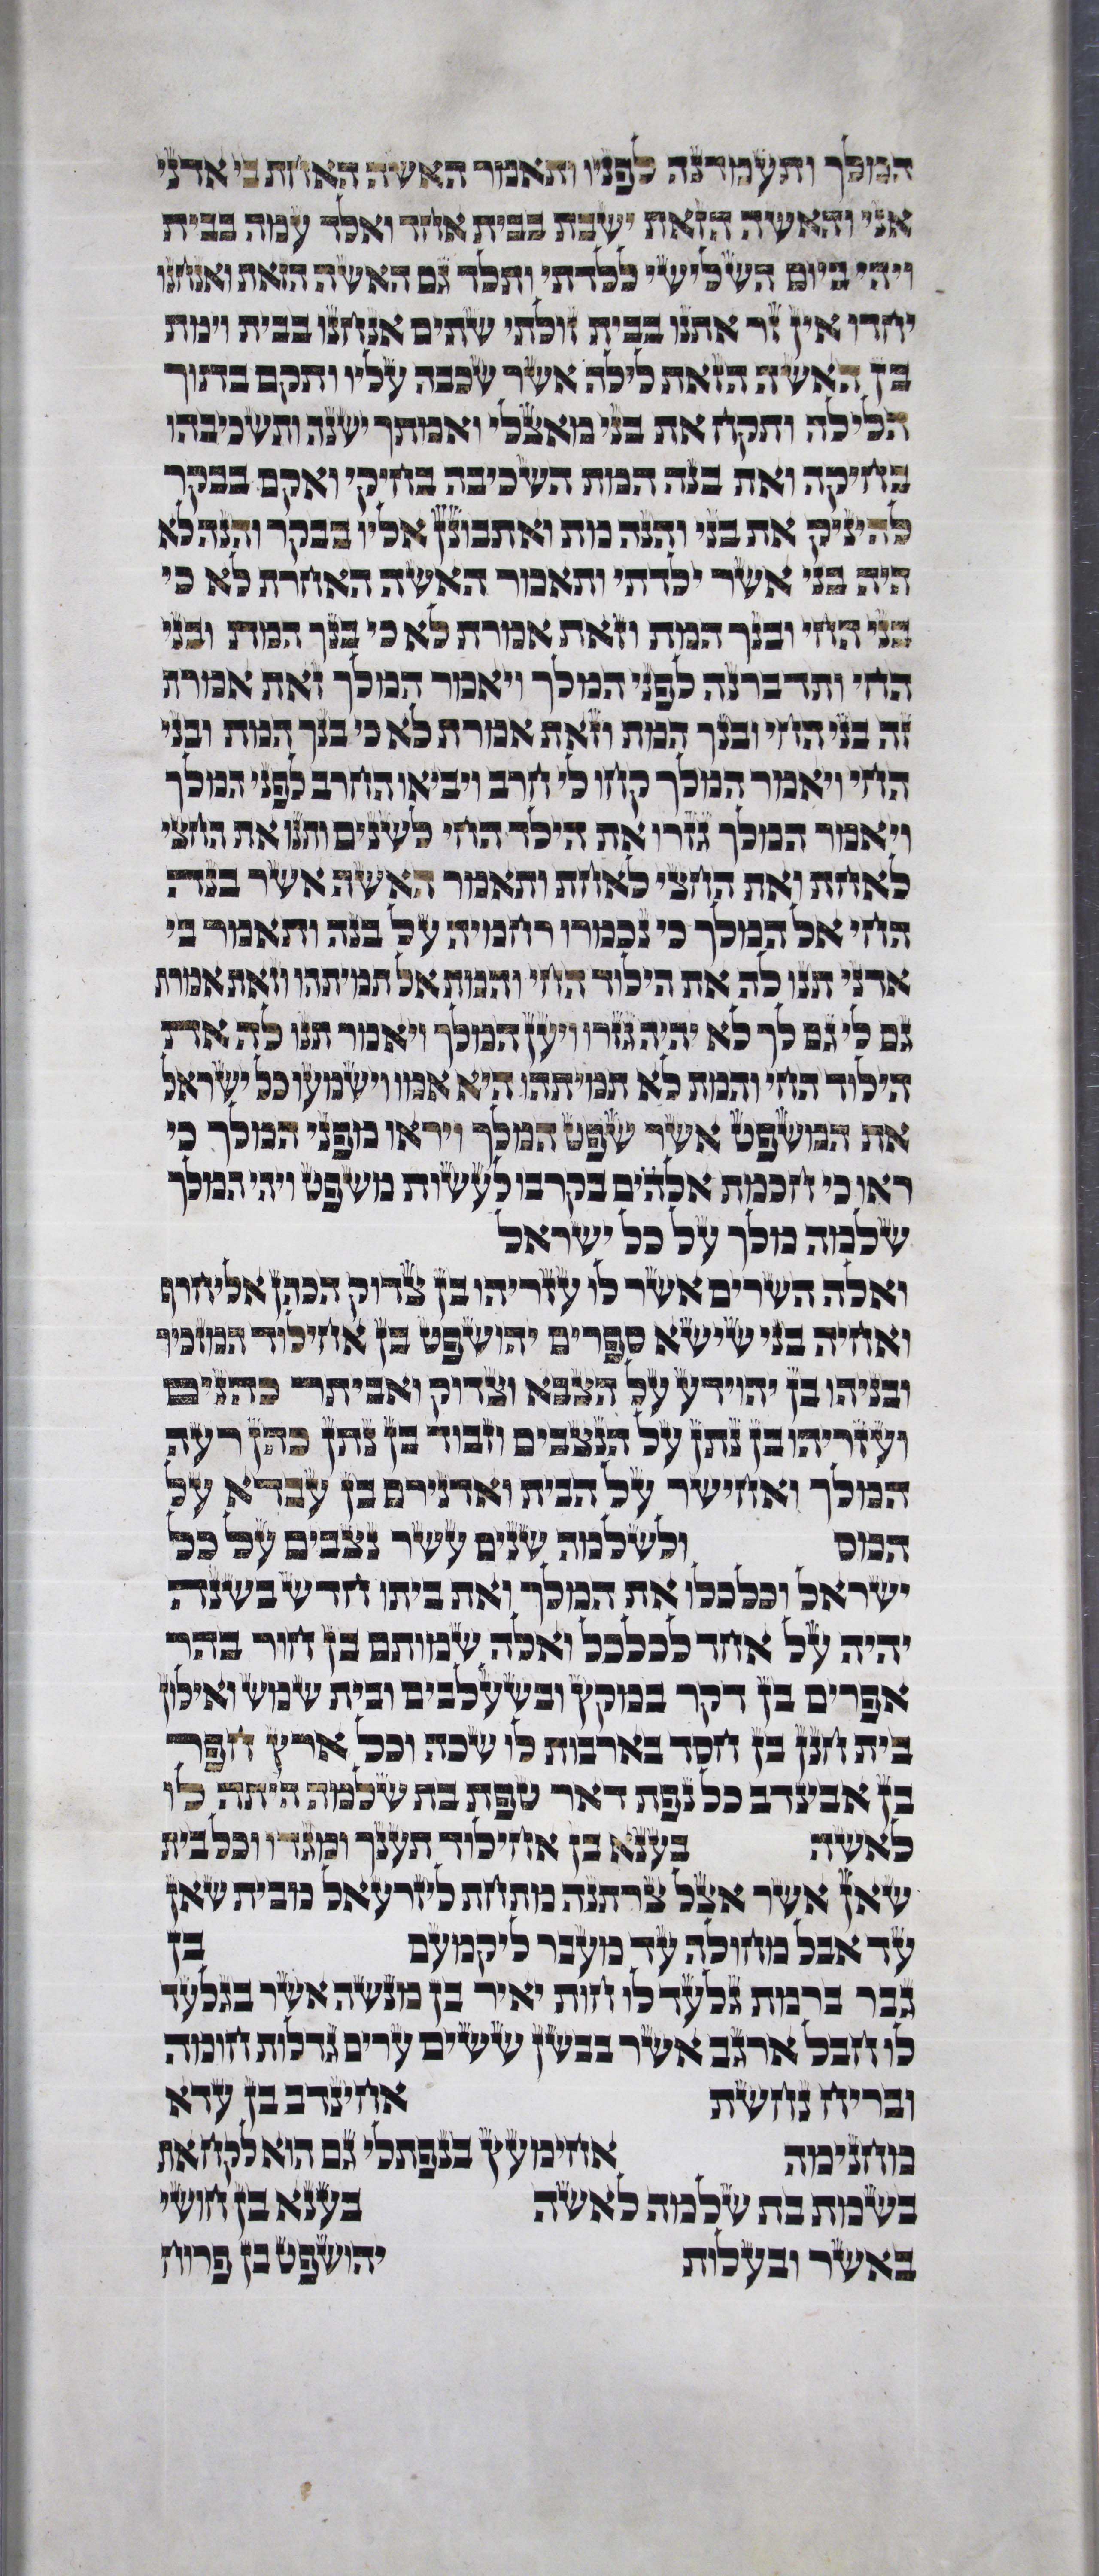 המלך ותעמדנה לפניו ותאמר האשה האחת בי אדני
אני והאשה הזאת ישבת בבית אחד ואלד עמה בבית
ויהי ביום השלישי ללדתי ותלד גם האשה הזאת ואנחנו
יחדו אין זר אתנו בבית זולתי שתים אנחנו בבית וימת
בן האשה הזאת לילה אשר שכבה עליו ותקם בתוך
הלילה ותקח את בני מאצלי ואמתך ישנה ותשכיבהו
בחיקה ואת בנה המת השכיבה בחיקי ואקם בבקר
להיניק את בני והנה מת ואתבונן אליו בבקר והנה לא
היה בני אשר ילדתי ותאמר האשה האחרת לא כי
בני החי ובנך המת וזאת אמרת לא כי בנך המת ובני
החי ותדברנה לפני המלך ויאמר המלך זאת אמרת
זה בני החי ובנך המת וזאת אמרת לא כי בנך המת ובני
החי ויאמר המלך קחו לי חרב ויביאו החרב לפני המלך
ויאמר המלך גזרו את הילד החי לשנים ותנו את החצי
לאחת ואת החצי לאחת ותאמר האשה אשר בנה
החי אל המלך כי נכמרו רחמיה על בנה ותאמר בי
אדני תנו לה את הילוד החי והמת אל תמיתהו וזאת אמרת
גם לי גם לך לא יהיה גזרו ויען המלך ויאמר תנו לה את
הילוד החי והמת לא תמיתהו היא אמו וישמעו כל ישראל
את המשפט אשר שפט המלך ויראו מפני המלך כי
ראו כי חכמת אלהים בקרבו לעשות משפט ויהי המלך
שלמה מלך על כל ישראל
ואלה השרים אשר לו עזריהו בן צדוק הכהן אליחרף
ואחיה בני שישא ספרים יהושפט בן אחילוד המזכיר
ובניהו בן יהוידע על הצבא וצדוק ואביתר כהנים
ועזריהו בן נתן על הנצבים וזבוד בן נתן כהן רעה
המלך ואחישר על הבית ואדנירם בן עבדא על
המס ולשלמה שנים עשר נצבים על כל
ישראל וכלכלו את המלך ואת ביתו חדש בשנה
יהיה על אחד לכלכל ואלה שמותם בן חור בהר
אפרים בן דקר במקץ ובשעלבים ובית שמש ואילון
בית חנן בן חסד בארבות לו שכה וכל ארץ חפר
בן אבינדב כל נפת דאר טפת בת שלמה היתה לו
לאשה בענא בן אחילוד תענך ומגדו וכל בית
שאן אשר אצל צרתנה מתחת ליזרעאל מבית שאן
עד אבל מחולה עד מעבר ליקמעם בן
גבר ברמת גלעד לו חות יאיר בן מנשה אשר בגלעד
לו חבל ארגב אשר בבשן ששים ערים גדלות חומה
ובריח נחשת אחינדב בן עדא
מחנימה אחימעץ בנפתלי גם הוא לקח את
בשמת בת שלמה לאשה בענא בן חושי
באשר ובעלות יהושפט בן פרוח